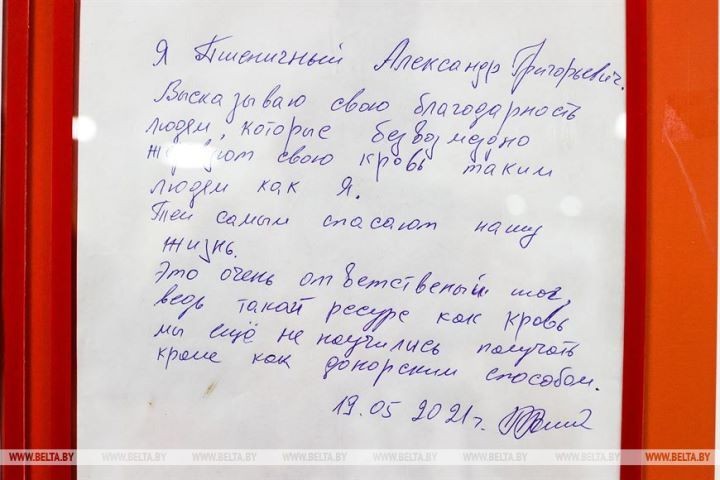 Я Пшеничный Александр Григорьевич.
Высказываю свою благодарность
людям, которые безвозмездно
жертвуют свою кровь таким
людям как Я.
Тем самым спасают нашу
жизнь.
Это очень ответственый шаг,
ведь такой ресурс как кровь
мы ещё не научились получать
кроме как донорским способом.
19.05 2021г.
WWW.BELTA.BY WWW.BELTA.BY WWW.BELTA.BY WWW.BELTA.BY WWW.BELTA.BY